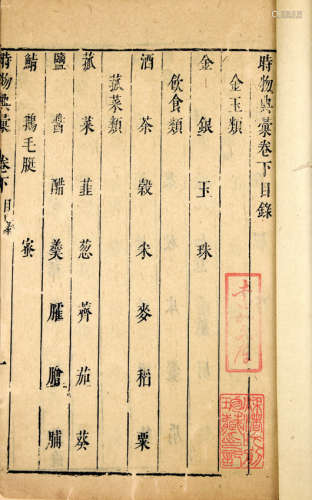 時物典彙卷下目錄
金玉類
金 銀 玉 珠
飲食類
酒 茶 穀 米 麥 稻 粟
菰菜類
菰 菜 韭 葱 薺 茄 葵
鹽 醬 醋 羹 臛 膾 脯
鯖 鵝毛脡 蜜
時物典彙 卷下 目錄 一